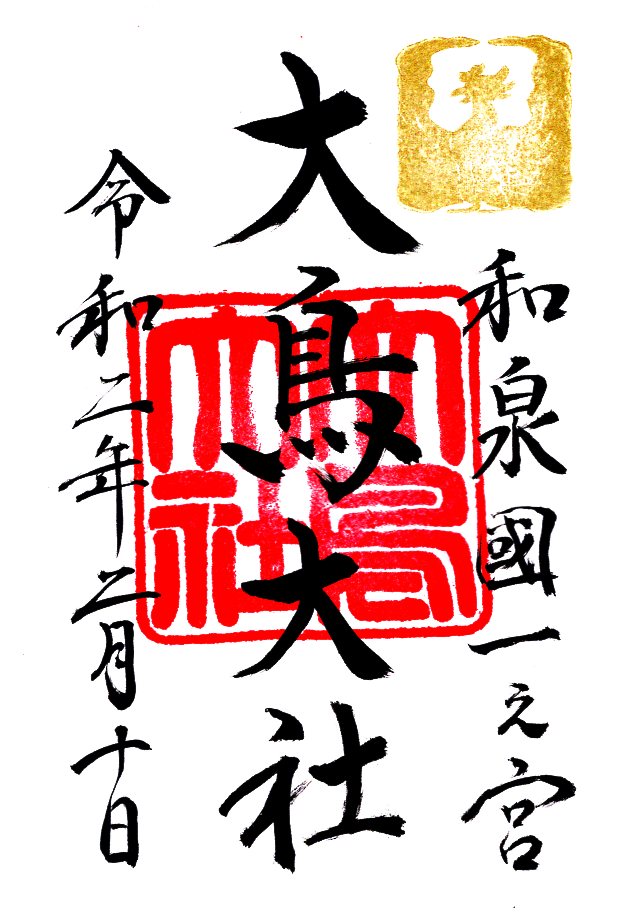 和泉國一之宮
大鳥大社
大鳥大社
令和二年二月十日